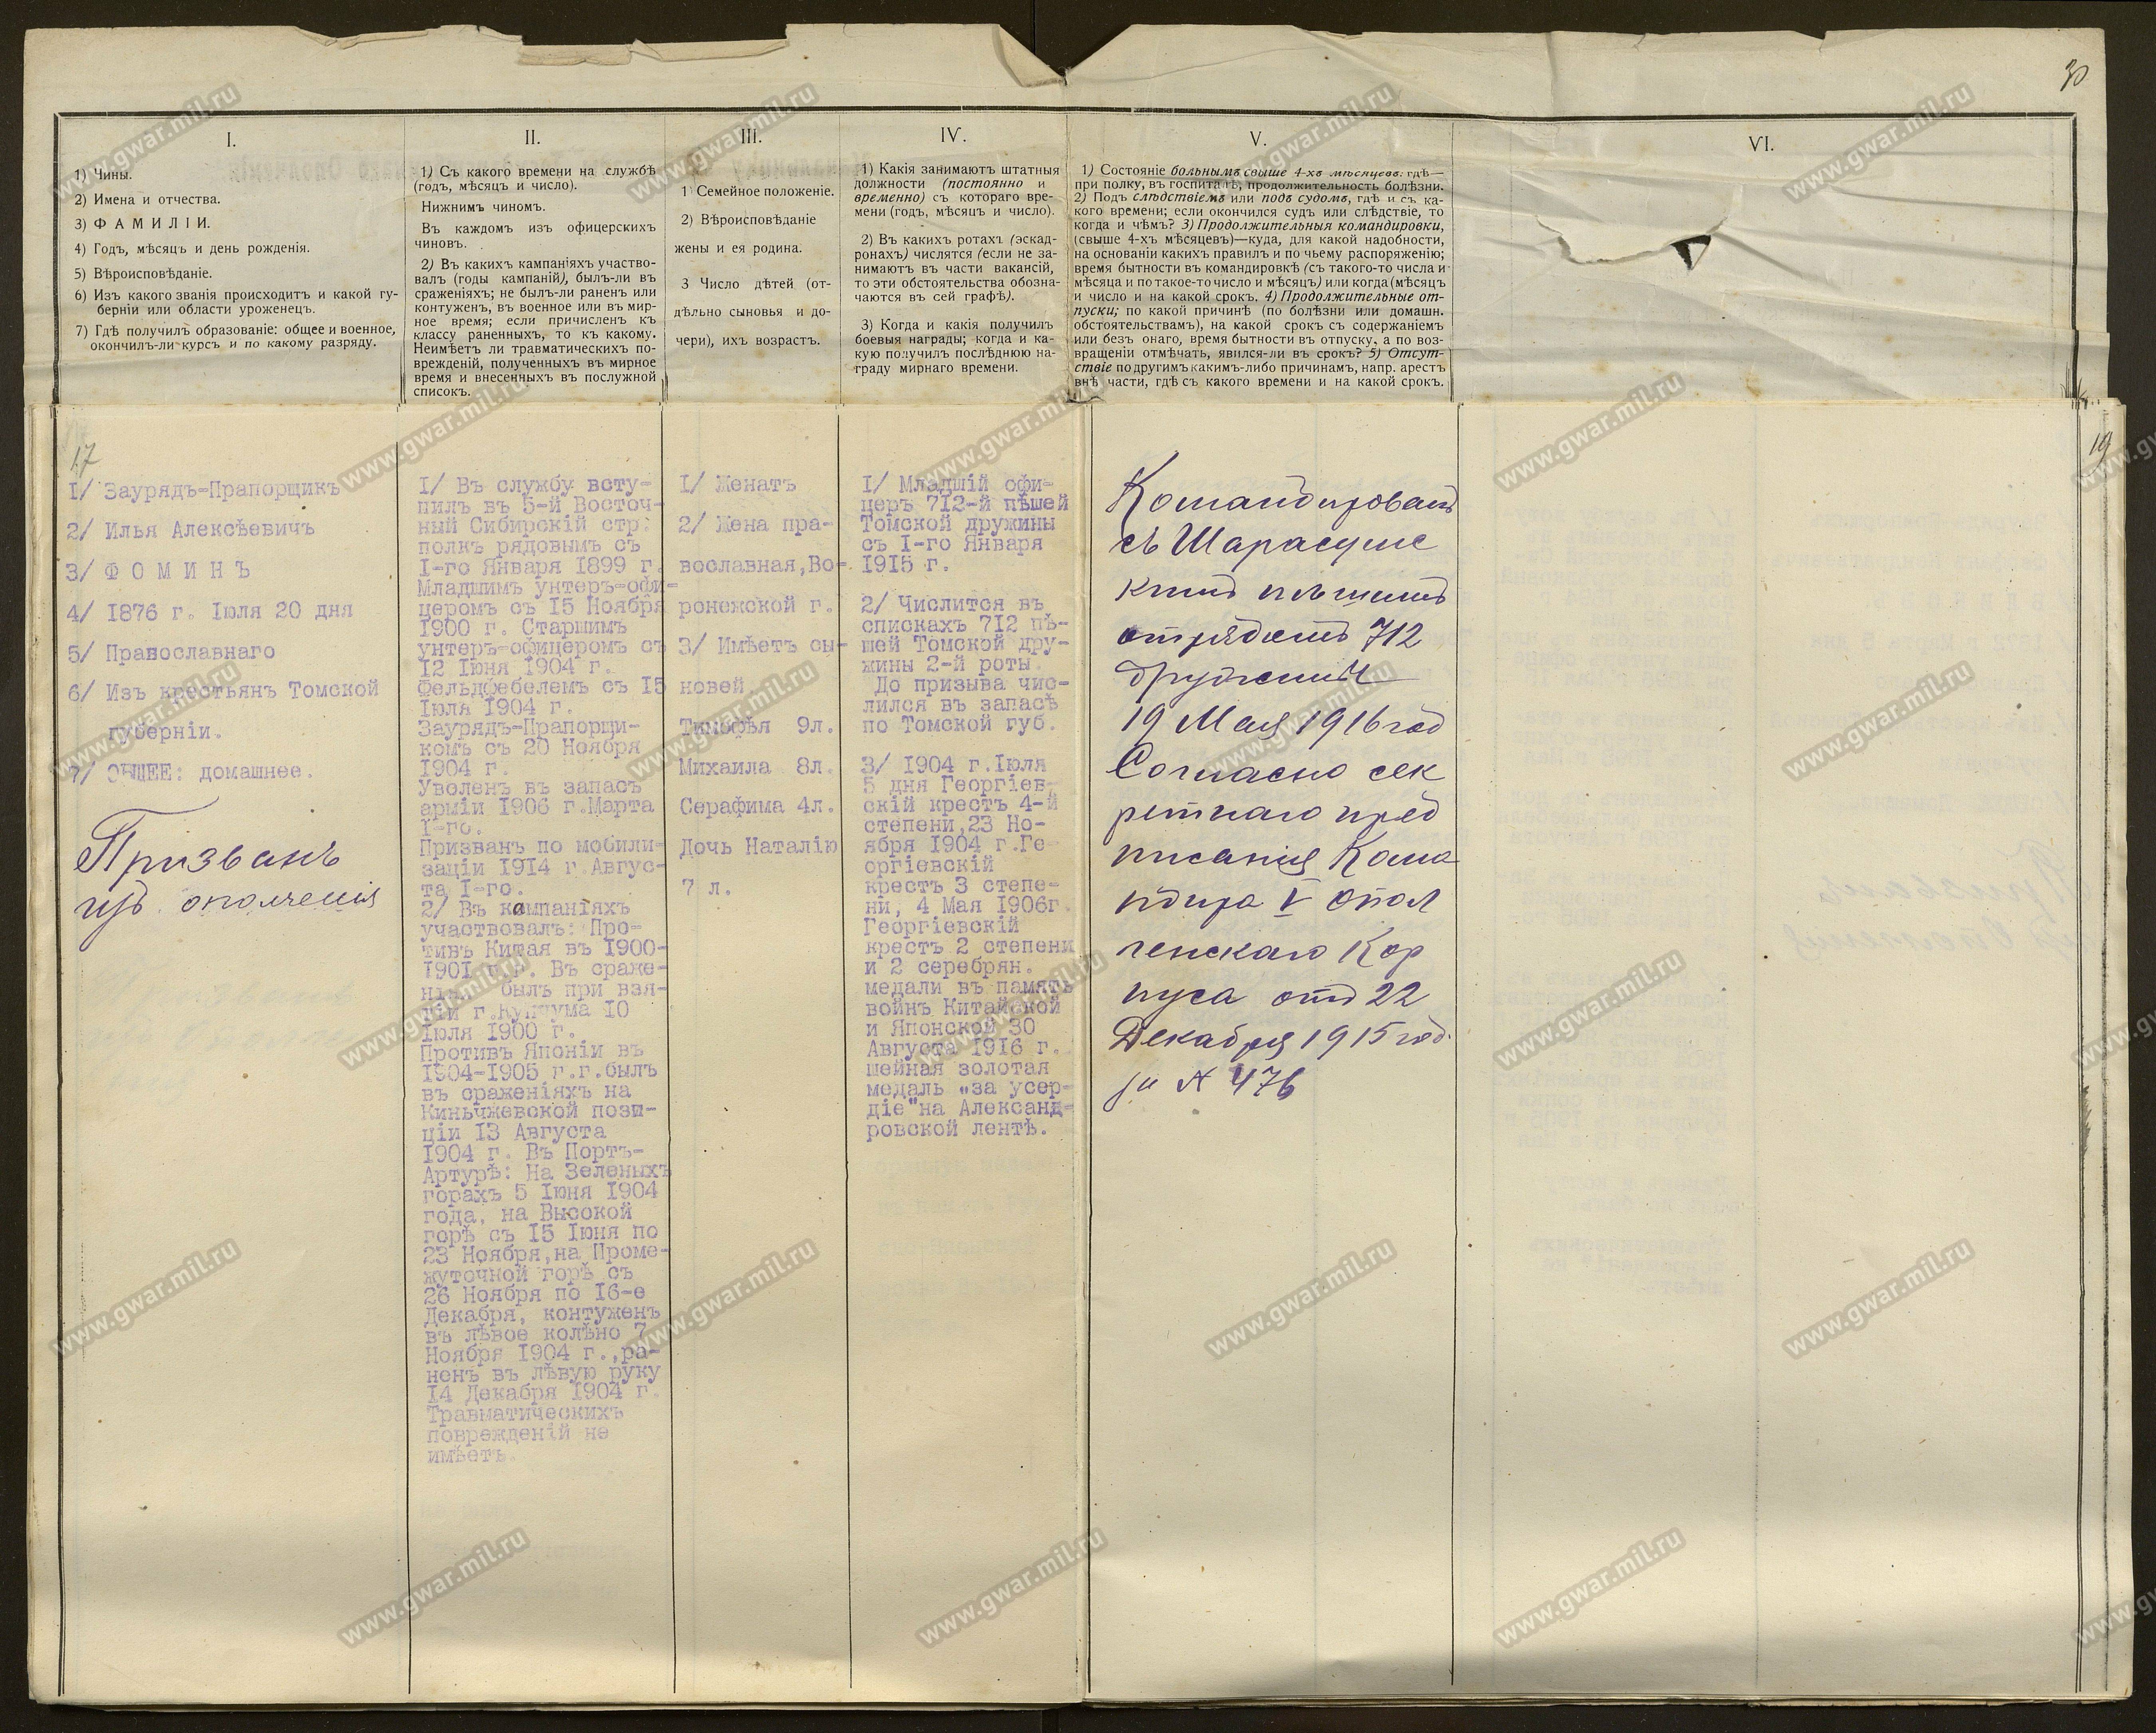 30
I.
1) Чины.
2) Имена и отчества.
3) ФАМИЛІИ.
4) Годъ, мѣсяцъ и день рожденія.
5) Вѣроисповѣданіе.
6) Изъ какого званія происходитъ и какой гу-
берніи или области уроженецъ.
7) Гдѣ получилъ образованіе: общее и военное,
окончилъ-ли курсъ и по какому разряду.
II.
1) Съ какого времени на службѣ
(годъ, мѣсяцъ и число).
Нижнимъ чиномъ.
Въ каждомъ изъ офицерскихъ
чиновъ.
2) Въ какихъ кампаніяхъ участво-
валъ (годы кампаній), былъ-ли въ
сраженіяхъ; не былъ-ли раненъ или
контуженъ, въ военное или въ мир-
ное время; если причисленъ къ
классу раненныхъ, то къ какому.
Неимѣетъ ли травматическихъ по-
врежденій, полученныхъ въ мирное
время и внесенныхъ въ послужной
списокъ.
III.
1 Семейное положеніе.
2) Вѣроисповѣданіе
жены и ея родина.
3 Число дѣтей (от-
дѣльно сыновья и до-
чери), ихъ возрастъ.
IV.
1) Какія занимаютъ штатныя
должности (постоянно и
временно) съ котораго вре-
мени (годъ, мѣсяцъ и число).
2) Въ какихъ ротахъ (эскад-
ронахъ) числятся (если не за-
нимаютъ въ части вакансій,
то эти обстоятельства обозна-
чаются въ сей графѣ).
3) Когда и какія получилъ
боевыя награды; когда и ка-
кую получилъ послѣднюю на-
граду мирнаго времени.
V.
1) Состояніе больнымъ свыше 4-хъ мѣсяцевъ: гдѣ—
при полку, въ госпиталѣ, продолжительность болѣзни.
2) Подъ слѣдствіемъ или подъ судомъ, гдѣ и съ ка-
кого времени; если окончился судъ или слѣдствіе, то
когда и чѣмъ? 3) Продолжительныя командировки,
(свыше 4-хъ мѣсяцевъ)—куда, для какой надобности,
на основаніи какихъ правилъ и по чьему распоряженію;
время бытности въ командировкѣ (съ такого-то числа и
мѣсяца и по такое-то число и мѣсяцъ) или когда (мѣсяцъ
и число и на какой срокъ. 4) Продолжительные от-
пуски; по какой причинѣ (по болѣзни или домашн.
обстоятельствамъ), на какой срокъ съ содержаніемъ
или безъ онаго, время бытности въ отпуску, а по воз-
вращеніи отмѣчать, явился-ли въ срокъ? 5) Отсут-
ствіе по другимъ какимъ-либо причинамъ, напр. арестъ
внѣ части, гдѣ съ какого времени и на какой срокъ.
VI.
17
I/ Заурядъ-Прапорщикъ
2/ Илья Алексѣевичъ
3/ ФОМИНЪ
4/ 1876 г. Іюля 20 дня
5/ Православнаго
6/ Изъ крестьянъ Томской
губерніи.
7/ ОБЩЕЕ: домашнее.
Призванъ
изъ ополченія
I/ Въ службу всту-
пилъ въ 5-й Восточ-
ный Сибирскій стр.
полкъ рядовымъ съ
I-го Января 1899 г.
Младшимъ унтеръ-офи-
церомъ съ 15 Ноября
1900 г. Старшимъ
унтеръ-офицеромъ съ
12 Іюня 1904 г.
Фельдфебелемъ съ 15
Іюля 1904 г.
Заурядъ-Прапорщи-
комъ съ 20 Ноября
1904 г.
Уволенъ въ запасъ
арміи 1906 г.Марта
I-го.
Призванъ по мобили-
заціи 1914 г.Авгус-
та I-го.
2/ Въ кампаніяхъ
участвовалъ: Про-
тивъ Китая въ 1900-
1901 г.г. Въ сраже-
ніи былъ при взя-
тіи г.Кунчума 10
Іюля 1900 г.
Противъ Японіи въ
1904-1905 г.г.былъ
въ сраженіяхъ на
Киньчжевской пози-
ціи 13 Августа
1904 г. Въ Портъ-
Артурѣ: На Зеленыхъ
горахъ 5 Іюня 1904
года, на Высокой
горѣ съ 15 Іюня по
23 Ноября,на Проме-
жуточной горѣ съ
26 Ноября по 16-е
Декабря, контуженъ
въ лѣвое колѣно 7
Ноября 1904 г.,ра-
ненъ въ лѣвую руку
14 Декабря 1904 г.
Травматическихъ
поврежденій не
имѣетъ.
I/ Женатъ
2/ Жена пра-
вославная,Во-
ронежской г.
3/ Имѣетъ сы-
новей
Тимофѣя 9л.
Михаила 8л.
Серафима 4л.
Дочь Наталію
7 л.
I/ Младшій офи-
церъ 712-й пѣшей
Томской дружины
съ I-го Января
1915 г.
2/ Числится въ
спискахъ 712 пѣ-
шей Томской дру-
жины 2-й роты.
До призыва чис-
лился въ запасѣ
по Томской губ.
3/ 1904 г.Іюля
5 дня Георгіев-
скій крестъ 4-й
степени,23 Но-
ября 1904 г.Ге
оргіевскій
крестъ 3 степе-
ни, 4 Мая 1906г.
Георгіевскій
крестъ 2 степени
и 2 серебрян.
медали въ память
войнъ Китайской
и Японской 30
Августа 1916 г.
шейная золотая
медаль „за усер-
діе"на Александ-
ровской лентѣ.
Командированъ
съ Шарасунс
кимъ пѣшимъ
отрядомъ 712
дружины
19 Мая 1916 год
Согласно сек
ретнаго пред
писанія Кома
ндира V Опол
ченскаго Кор
пуса отъ 22
Декабря 1915 год.
за № 476
19
www.gwar.mil.ru